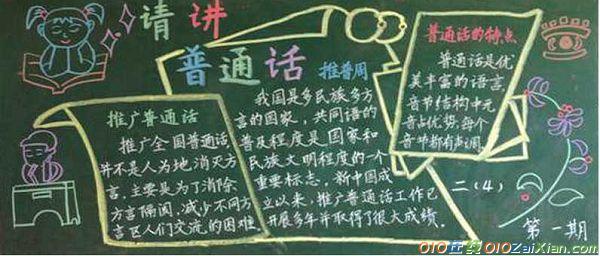 请讲
普通话
推普周
推广普通话
推广全国普通话,
并不是人为地消灭方
言,主要是为了消除
方言隔阂,减少不同方
言区人们交流的困难.
我国是多民族多方
言的国家,共同语的
普及程度是国家和
民族文明程度的一个
重要标志,新中国成
立以来,推广普通话工作已
开展多年并取得了很大成绩.
普通话的特点
普通话是优
美丰富的语言,
音节结构中元
音占优势,每个
音节都有声调.
二(4)
第一期
010在线 010ZaiXian.com